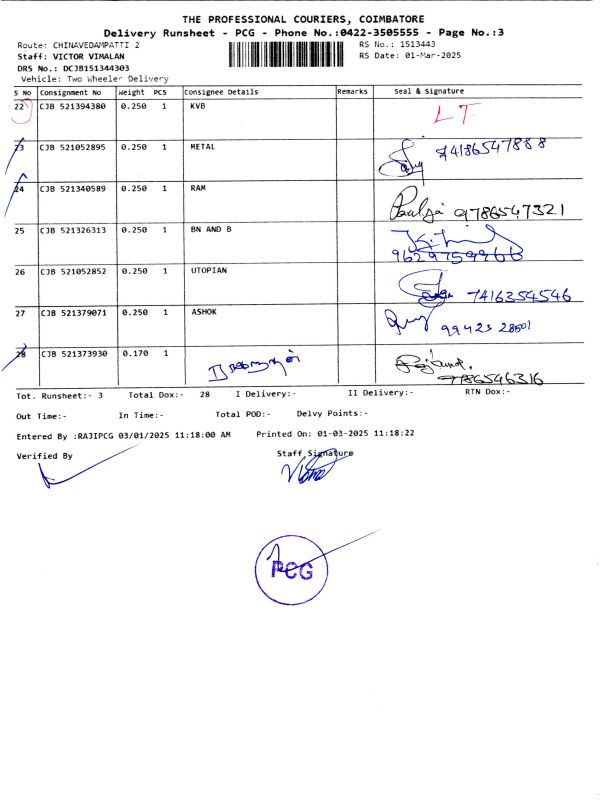 THE PROFESSIONAL COURIERS, COIMBATORE
Delivery Runsheet - PCG - Phone No.:0422-3505555 - Page No.:3
Route: CHINAVEDAMPATTI 2 RS No.: 1513443
Staff: VICTOR VIMALAN RS Date: 01-Mar-2025
DRS No.: DCJB151344303
Vehicle: Two Wheeler Delivery
S No Consignment No Weight PCS Consignee Details Remarks Seal & signature
22 CJB 521394380 0.250 1 KVB LT
23 CJB 521052895 0.250 1 METAL 74186547888
24 CJB 521340589 0.250 1 RAM 9786547321
25 CJB 521326313 0.250 1 BN AND B
26 CJB 521052852 0.250 1 UTOPIAN 7416354546
27 CJB 521379071 0.250 1 ASHOK 99423 28501
28 CJB 521373930 0.170 1 7786546316
Tot. Runsheet:- 3 Total Dox:- 28 I Delivery:- II Delivery:- RTN Dox:-
Out Time:- In Time:- Total POD:- Delvy Points:-
Entered By :RAJIPCG 03/01/2025 11:18:00 AM Printed On: 01-03-2025 11:18:22
Verified By Staff Signature
PCG